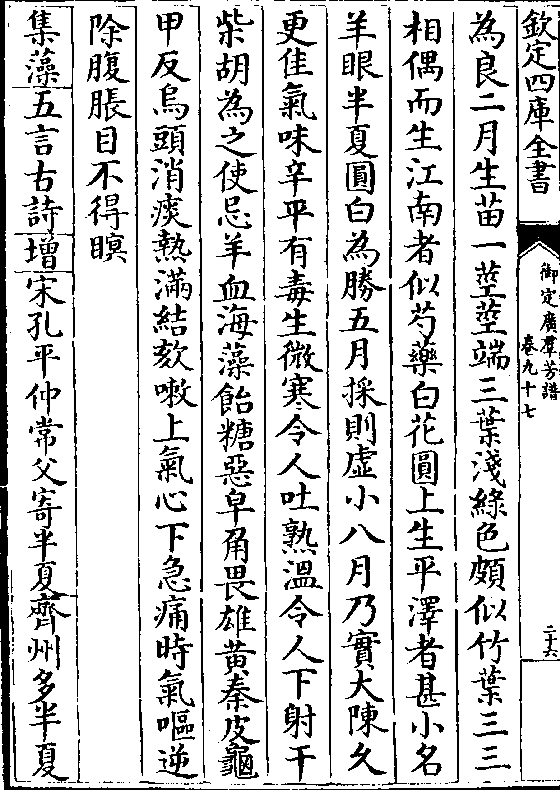 欽定四庫全書
御定廣羣芳譜
卷九十七
二十六
為良二月生苗一莖莖端三葉淺綠色頗似竹葉三三
相偶而生江南者似芍藥白花圓上生平澤者甚小名
羊眼半夏圓白為勝五月採則虛小八月乃實大陳久
更佳氣味辛平有毒生微寒令人吐熟溫令人下射干
柴胡為之使忌羊血海藻飴糖惡皁角畏雄黃秦皮龜
甲反烏頭消痰熱滿結欬嗽上氣心下急痛時氣嘔逆
除腹脹目不得瞑
集藻五言古詩增宋孔平仲常父寄半夏齊州多半夏